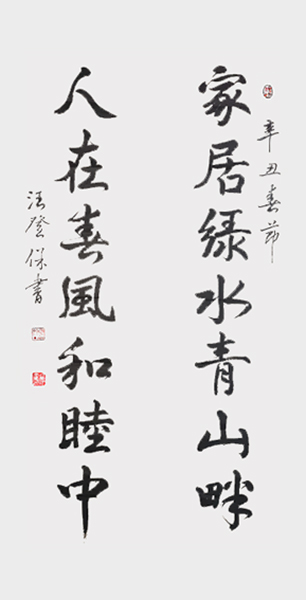 辛丑春节
家居绿水青山畔
人在春風和睦中
汪登保書